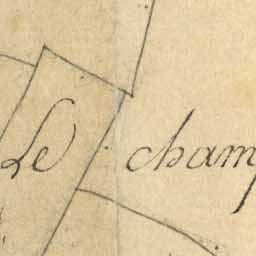 Le champ